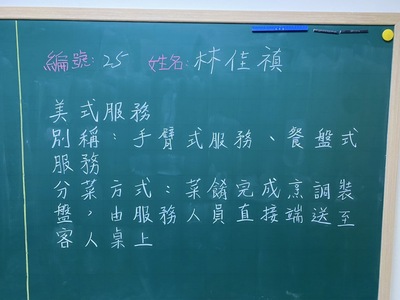 編號: 25 姓名: 林佳禛
美式服務
別稱：手臂式服務、餐盤式
服務
分菜方式：菜餚完成烹調裝
盤，由服務人員直接端送至
客人桌上